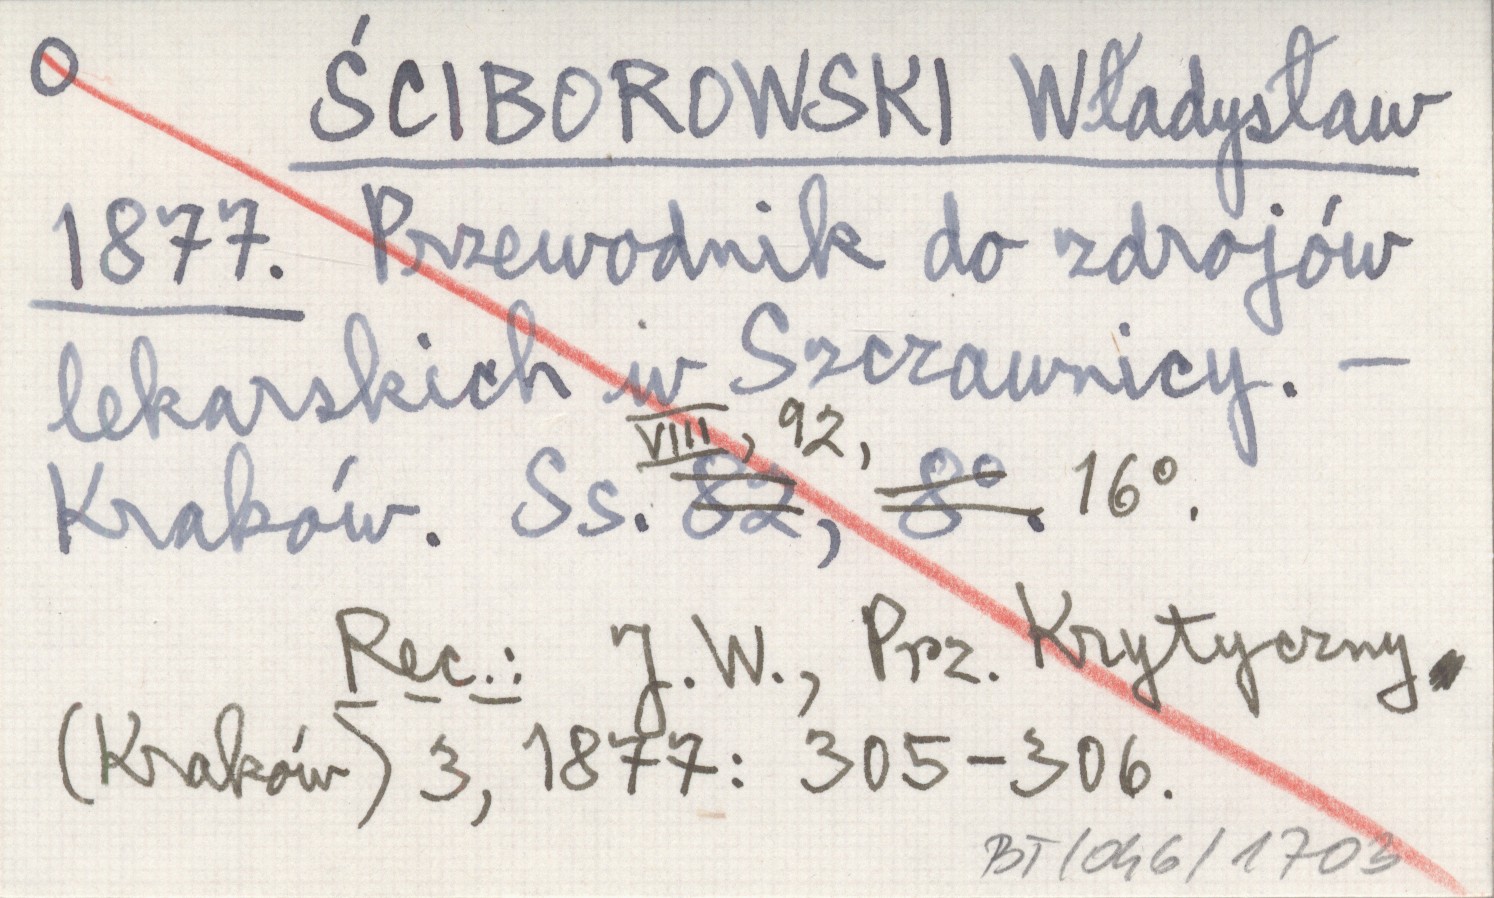 O ŚCIBOROWSKI Władysław
1877. Przewodnik do zdrojów
lekarskich w Szczawnicy. –
VIII, 92,
Kraków. Ss. 82, 8°. 16°.
Rec.: J. W., Prz. Krytyczny.
(Kraków) 3, 1877: 305–306.
BT/046/1703